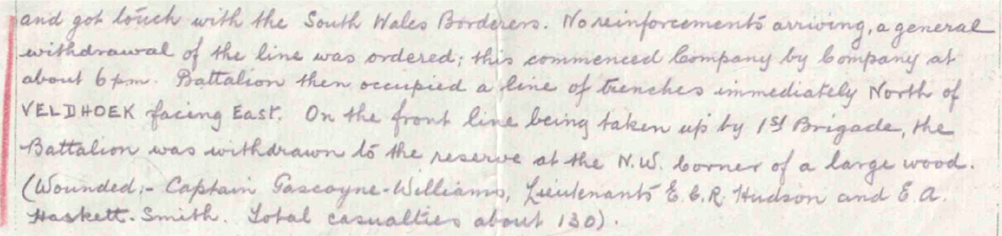 and got touch with the South Wales Borderers. No reinforcements arriving, a general
withdrawal of the line was ordered; this commenced Company by Company at
about 6 pm. Battalion then occupied a line of trenches immediately North of
VELDHOEK facing East. On the front line being taken up by 1st Brigade, the
Battalion was withdrawn to the reserve at the N.W. Corner of a large wood.
(Wounded:- Captain Gascoyne-Williams, Lieutenants E.C.R. Hudson and E.A.
Haskett-Smith. Total casualties about 130).